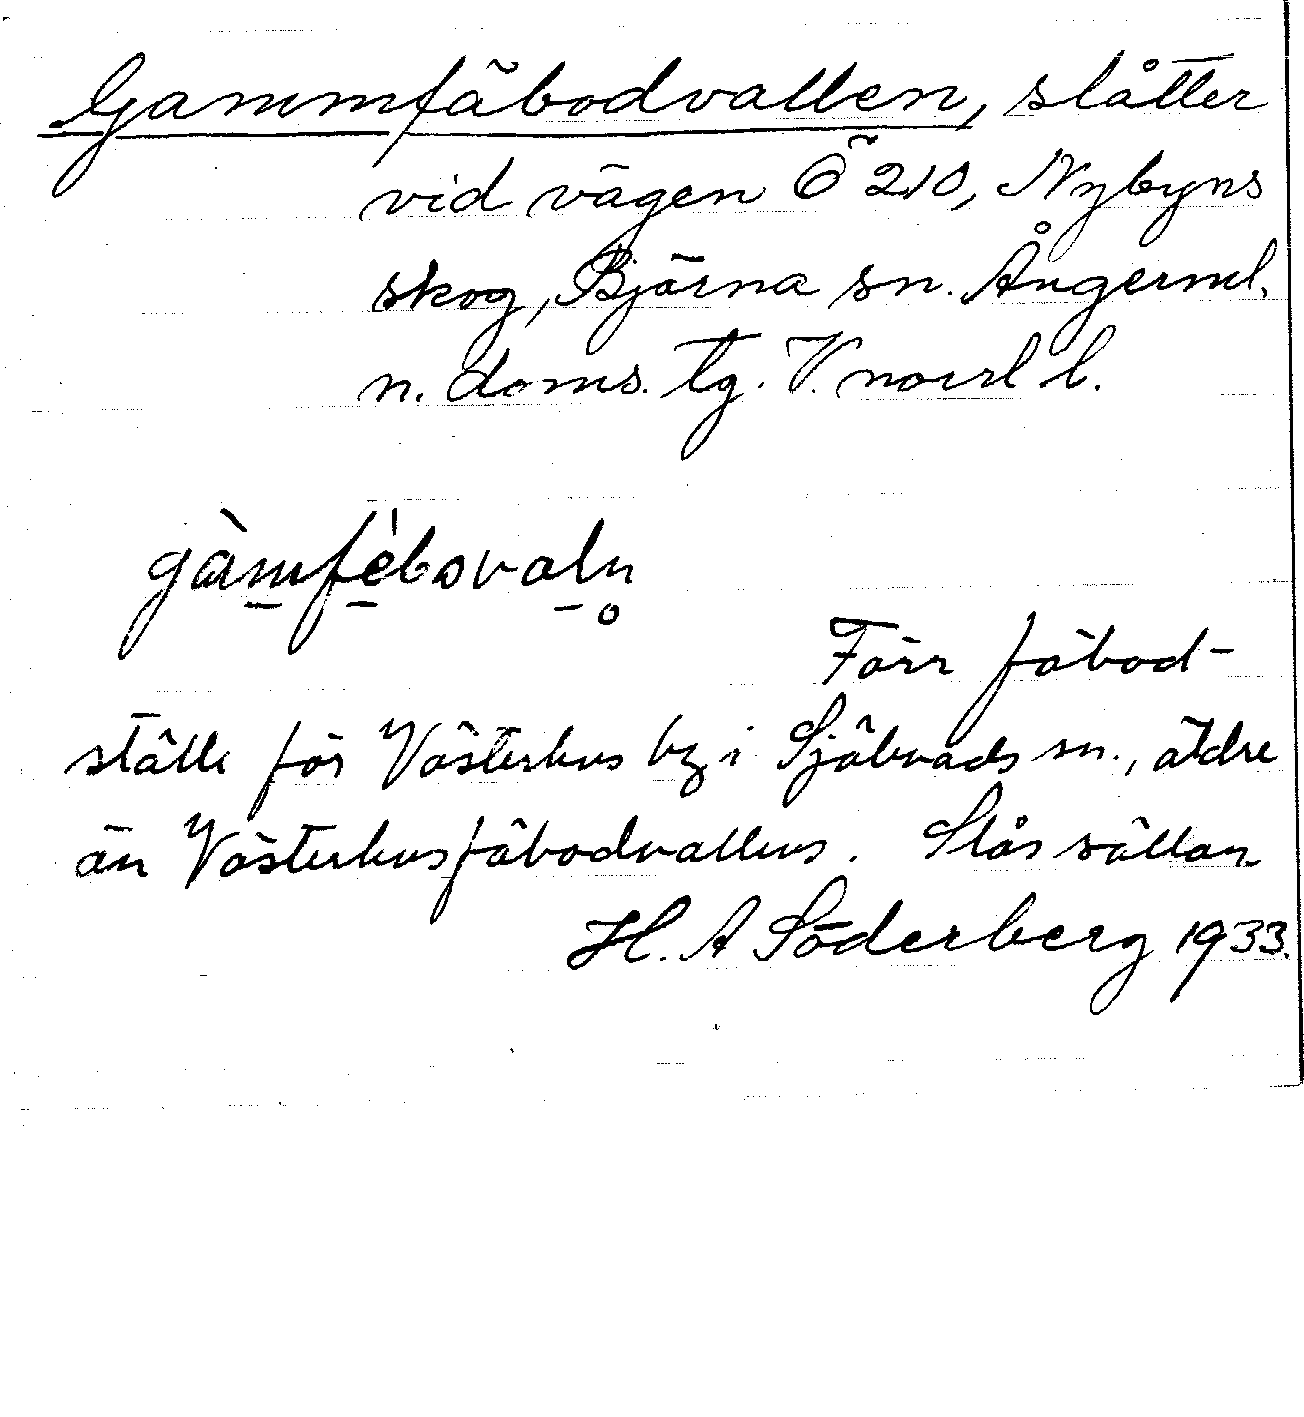 Gammfäbodvallen, slåtter
vid vägen Ö 210, Nybyns
skog, Björna sn. Ångerml.
n. doms. tg. V. norrl l.
gàmfèbsvaln̥
Förr fäbod-
ställe för Västerhus by i Själevads sn., äldre
än Västerhusfäbodvallens. Slås sällan
H. A Söderberg 1933.